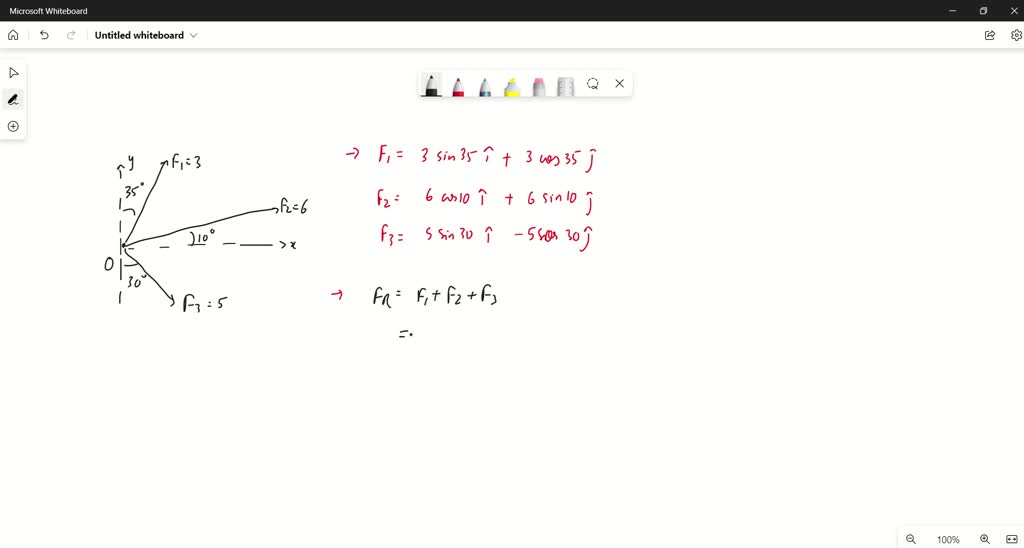 Microsoft Whiteboard
Untitled whiteboard
y
F₁=3
35°
F₂=6
10°
x
O
30°
F₃=5
→ F₁= 3 sin35 î + 3 cos35 ĵ
F₂= 6 cos10 î + 6 sin10 ĵ
F₃= 5 sin30 î -5cos 30 ĵ
→ FR= F₁+F₂+F₃
=
100%